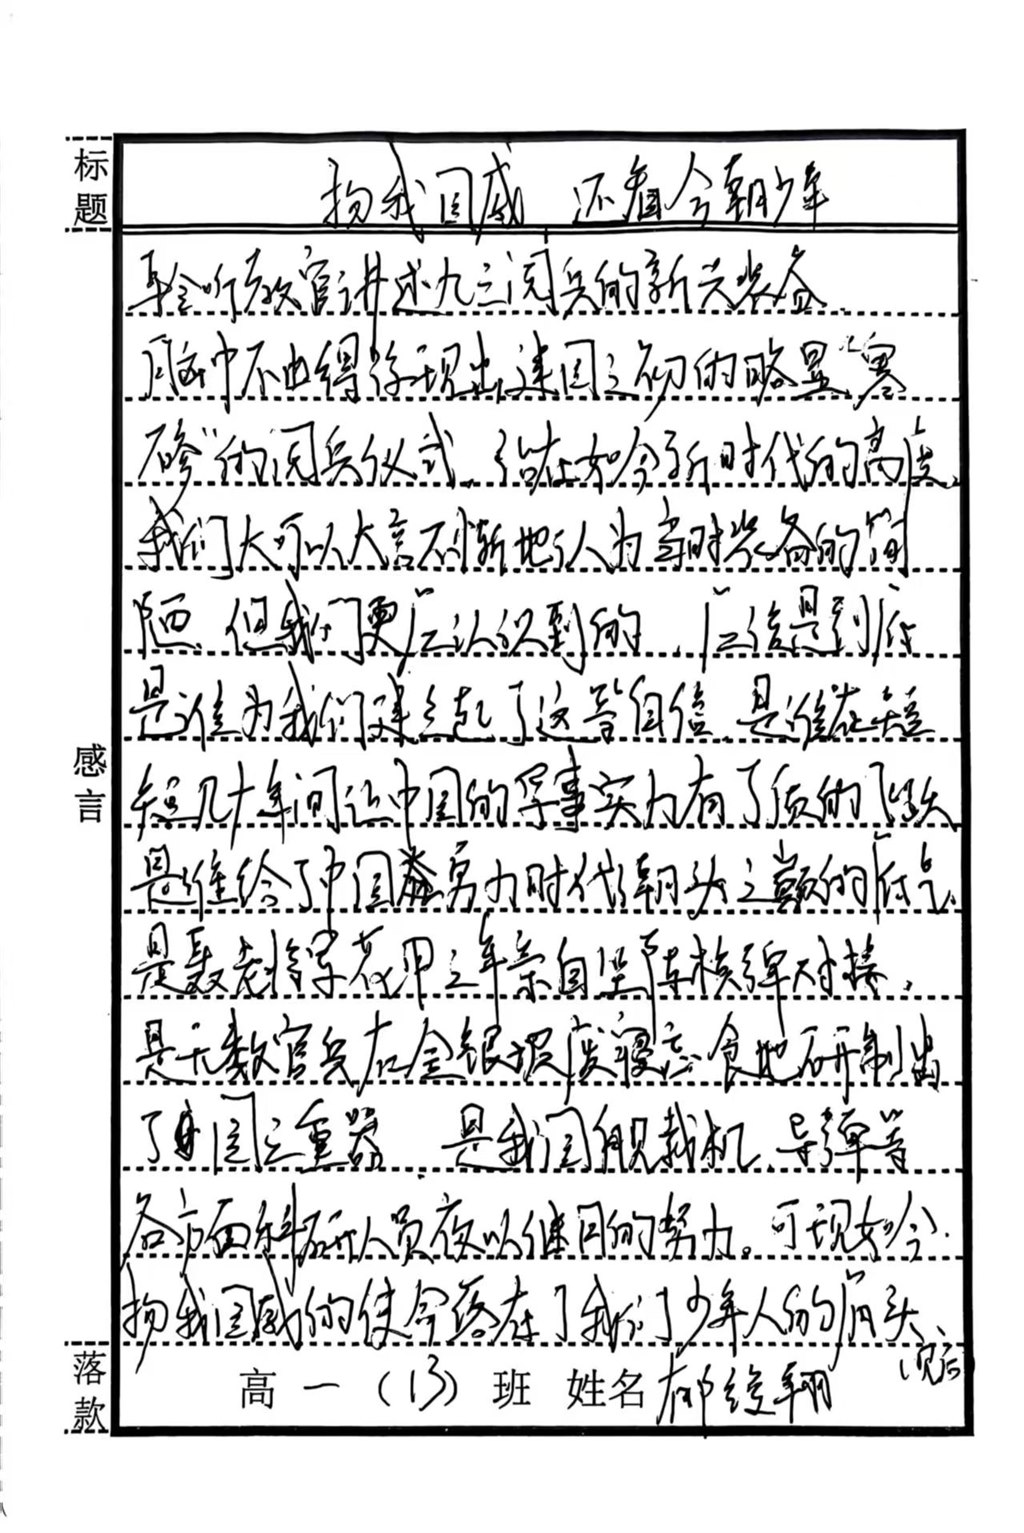 标题
扬我国威 还看今朝少年
聆听教官讲述九三阅兵的新兴装备,
脑中不由得浮现出建国之初的略显“寒
碜”的阅兵仪式。站在如今新时代的高度,
我们大可以大言不惭地认为当时装备的简
陋,但我们更应认识到的,应该是到底
是谁为我们建立起了这等自信,是谁在短
短几十年间让中国的军事实力有了质的飞跃
是谁给了中国勇力时代潮头之巅的底气。
是聂老将军花甲之年亲自坐阵核弹对接,
是无数官兵在金银滩废寝忘食地研制出
了国之重器,是我国舰载机、导弹等
各方面科研人员夜以继日的努力。可现如今,
扬我国威的使命落在了我们少年人的肩头、
感言
落款
高一(13)班 姓名
(见后)